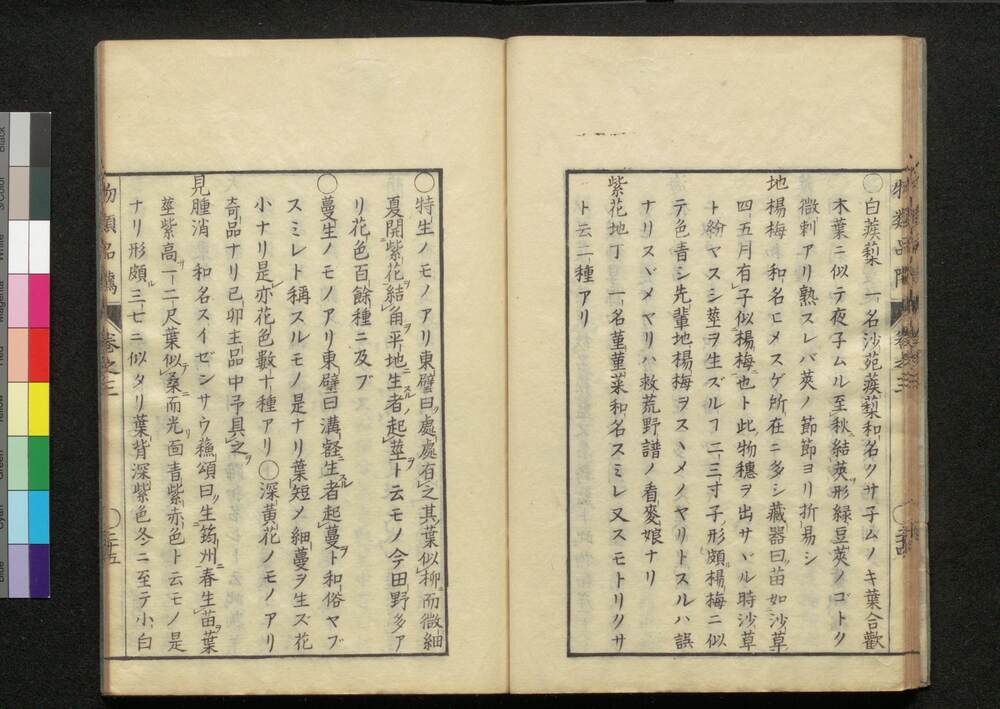 〇白蒺䔧 一名沙苑蒺䔧和名クサ子ムノキ葉合歡
木葉ニ似テ夜子ムル至秋結莢形緑豆莢ノゴトク
微刺アリ熟スレバ莢ノ節節ヨリ折易シ
地楊梅 和名ヒメスゲ所在ニ多シ藏器曰苗如沙草
四五月有子似楊梅也ト此物穗ヲ出サヾル時沙草
ト紛ヤスシ莖ヲ生ズルヿ二三寸子形頗楊梅ニ似
テ色青シ先輩地楊梅ヲスヾメノヤリトスルハ誤
ナリスヾメヤリハ救荒野譜ノ看麥娘ナリ
紫花地丁 一名菫菫菜和名スミレ又スモトリクサ
ト云二種アリ
物類品隲 巻之三 〇二十五
〇特生ノモノアリ東壁曰處處有之其葉似柳而微細
夏開紫花結角平地生者起莖ト云モノ今田野多ア
リ花色百餘種ニ及ブ
〇蔓生ノモノアリ東壁曰溝壑生者起蔓ト和俗ヤブ
スミレト稱スルモノ是ナリ葉短メ細蔓ヲ生ズ花
小ナリ是亦花色數十種アリ〇深黄花ノモノアリ
奇品ナリ已卯主品中予具之
見腫消 和名スイゼンサウ蘓頌曰生筠州春生苗葉
莖紫高一二尺葉似桑而光面青紫赤色ト云モノ是
ナリ形頗三七ニ似タリ葉背深紫色冬ニ至テ小白